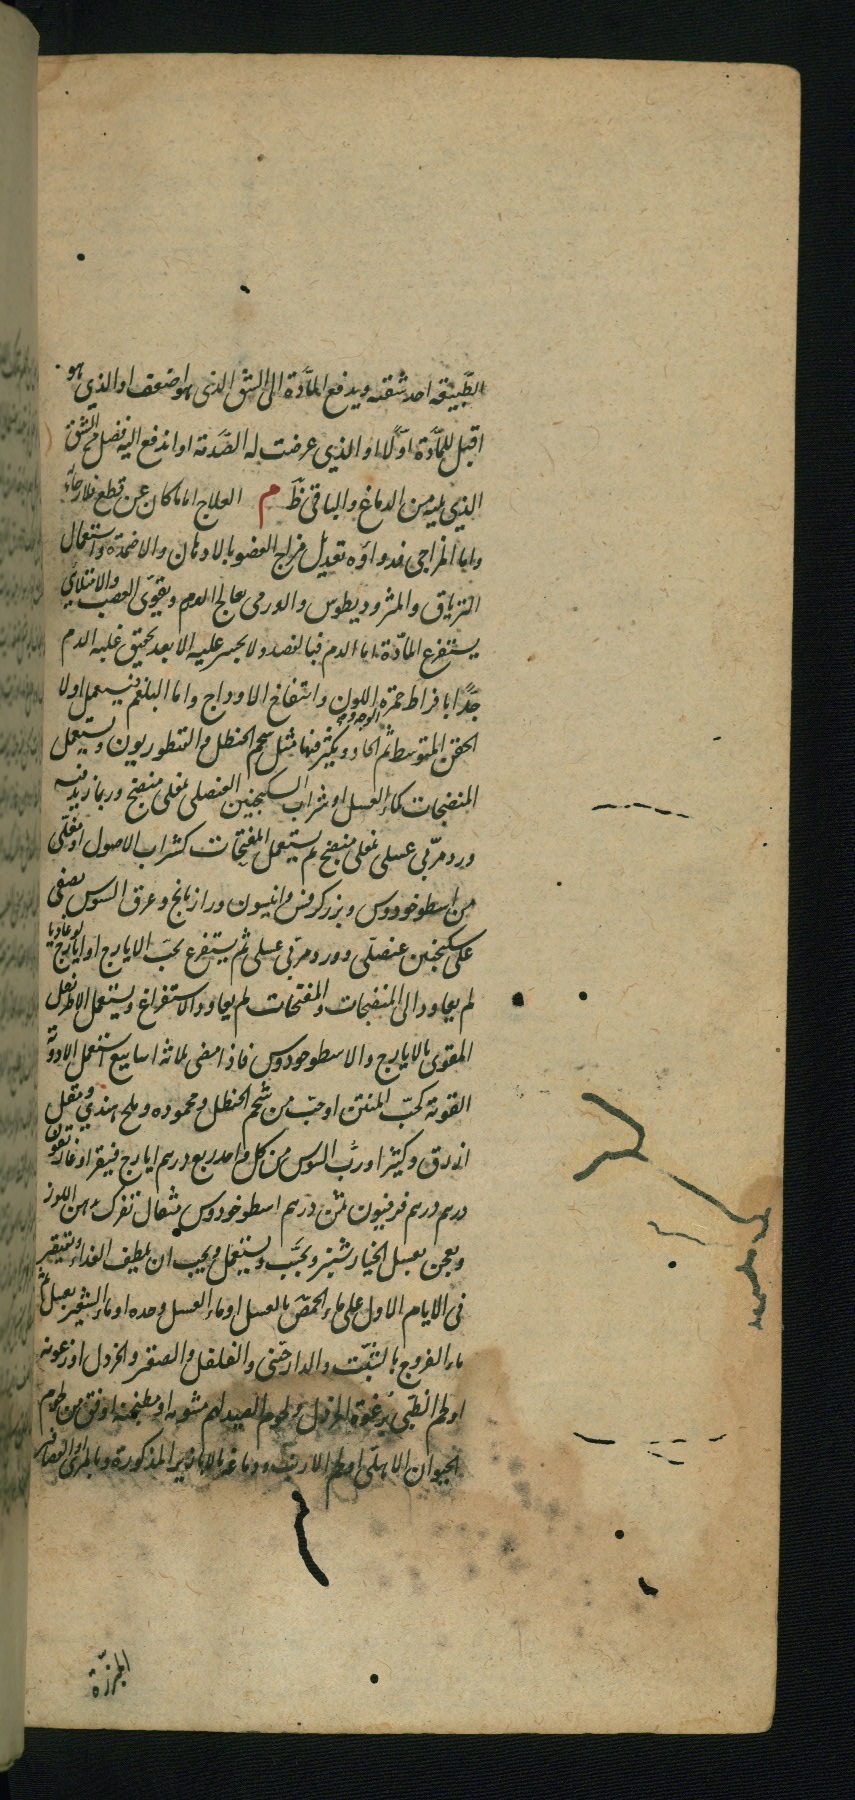 الطبيعة احد شقيه ويدفع المادّة الى الشق الذى هو اضعف او الذي هو
اقبل للمادّة اوّلا او الذي عرضت له الصّدمة او اندفع اليه فضل من الشق
الذي يليه من الدماغ والباقى ظ م العلاج اما ما كان عن قطع فلا رجاء
واما المزاجى فدواؤه تعديل مزاج العضو بالادهان والاضمدة واستعمال
الترياق والمثروديطوس والورمى يعالج الورم ويقوّى العصب والامتلائي
يستفرغ المادّة اما الدم فبالفصد ولا يجسر عليه الا بعد تحقيق غلبة الدم
جدًّا بافراط حمرة اللون وانتفاخ الاوداج واما البلغم فيستعمل اولا
الحقن المتوسط ثم الحادة ويكثر فيها مثل شحم الحنظل والقنطوريون ويستعمل
المنضجات كماء العسل او شراب السكنجبين العنصلى بمغلى منضج وربما زيد فيه
ورد مربّى عسلى بمغلى منضج ثم يستعمل المفتحات كشراب الاصول او مغلّى
من اسطوخودوس وبزر كرفس وانيسون ورازيانج وعرق السوس يصفى
على سكنجبين عنصلّى وورد مربّى عسلى ثم يستفرغ بحب الايارج او ايارج لوغاذيا
ثم يعاود الى المنضجات والمفتحات ثم يعاود الاستفراغ ويستعمل الاطريفل
المقوى بالايارج والاسطوخودوس فاذا مضى ثلاثة اسابيع استعمل الادوية
القوية كحبّ المنتن او حبّ من شحم الحنظل ومحموده وملح هندي ومقل
ازرق وكثيرا ورُبّ السوس من كل واحد ربع درهم ايارج فيقرا وغاريقون
درهم درهم فرفيون ثمن درهم اسطوخودوس مثقال تفرك بدهن اللوز
ويعجن بعسل الخيارشنبر ويحبّب ويستعمل ويجب ان يلطف الغذاء ويقتصر
فى الايام الاول على ماء الحمّص بالعسل او ماء العسل وحده او ماء الشعير بعسل ثم
ماء الفروج بالشبت والدارصينى والفلفل والصعتر والخردل او رغوته
او لحم الظبى برغوة الخردل ولحوم الصيد لهم مشويه او مطجنه اوفق من لحوم
الحيوان الاهلّى او لحم الارنب ودماغه بالابازير المذكورة وبالمرى او العصافير
المبرزة